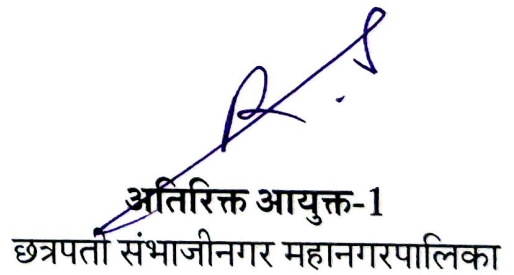 अतिरिक्त आयुक्त-1
छत्रपती संभाजीनगर महानगरपालिका